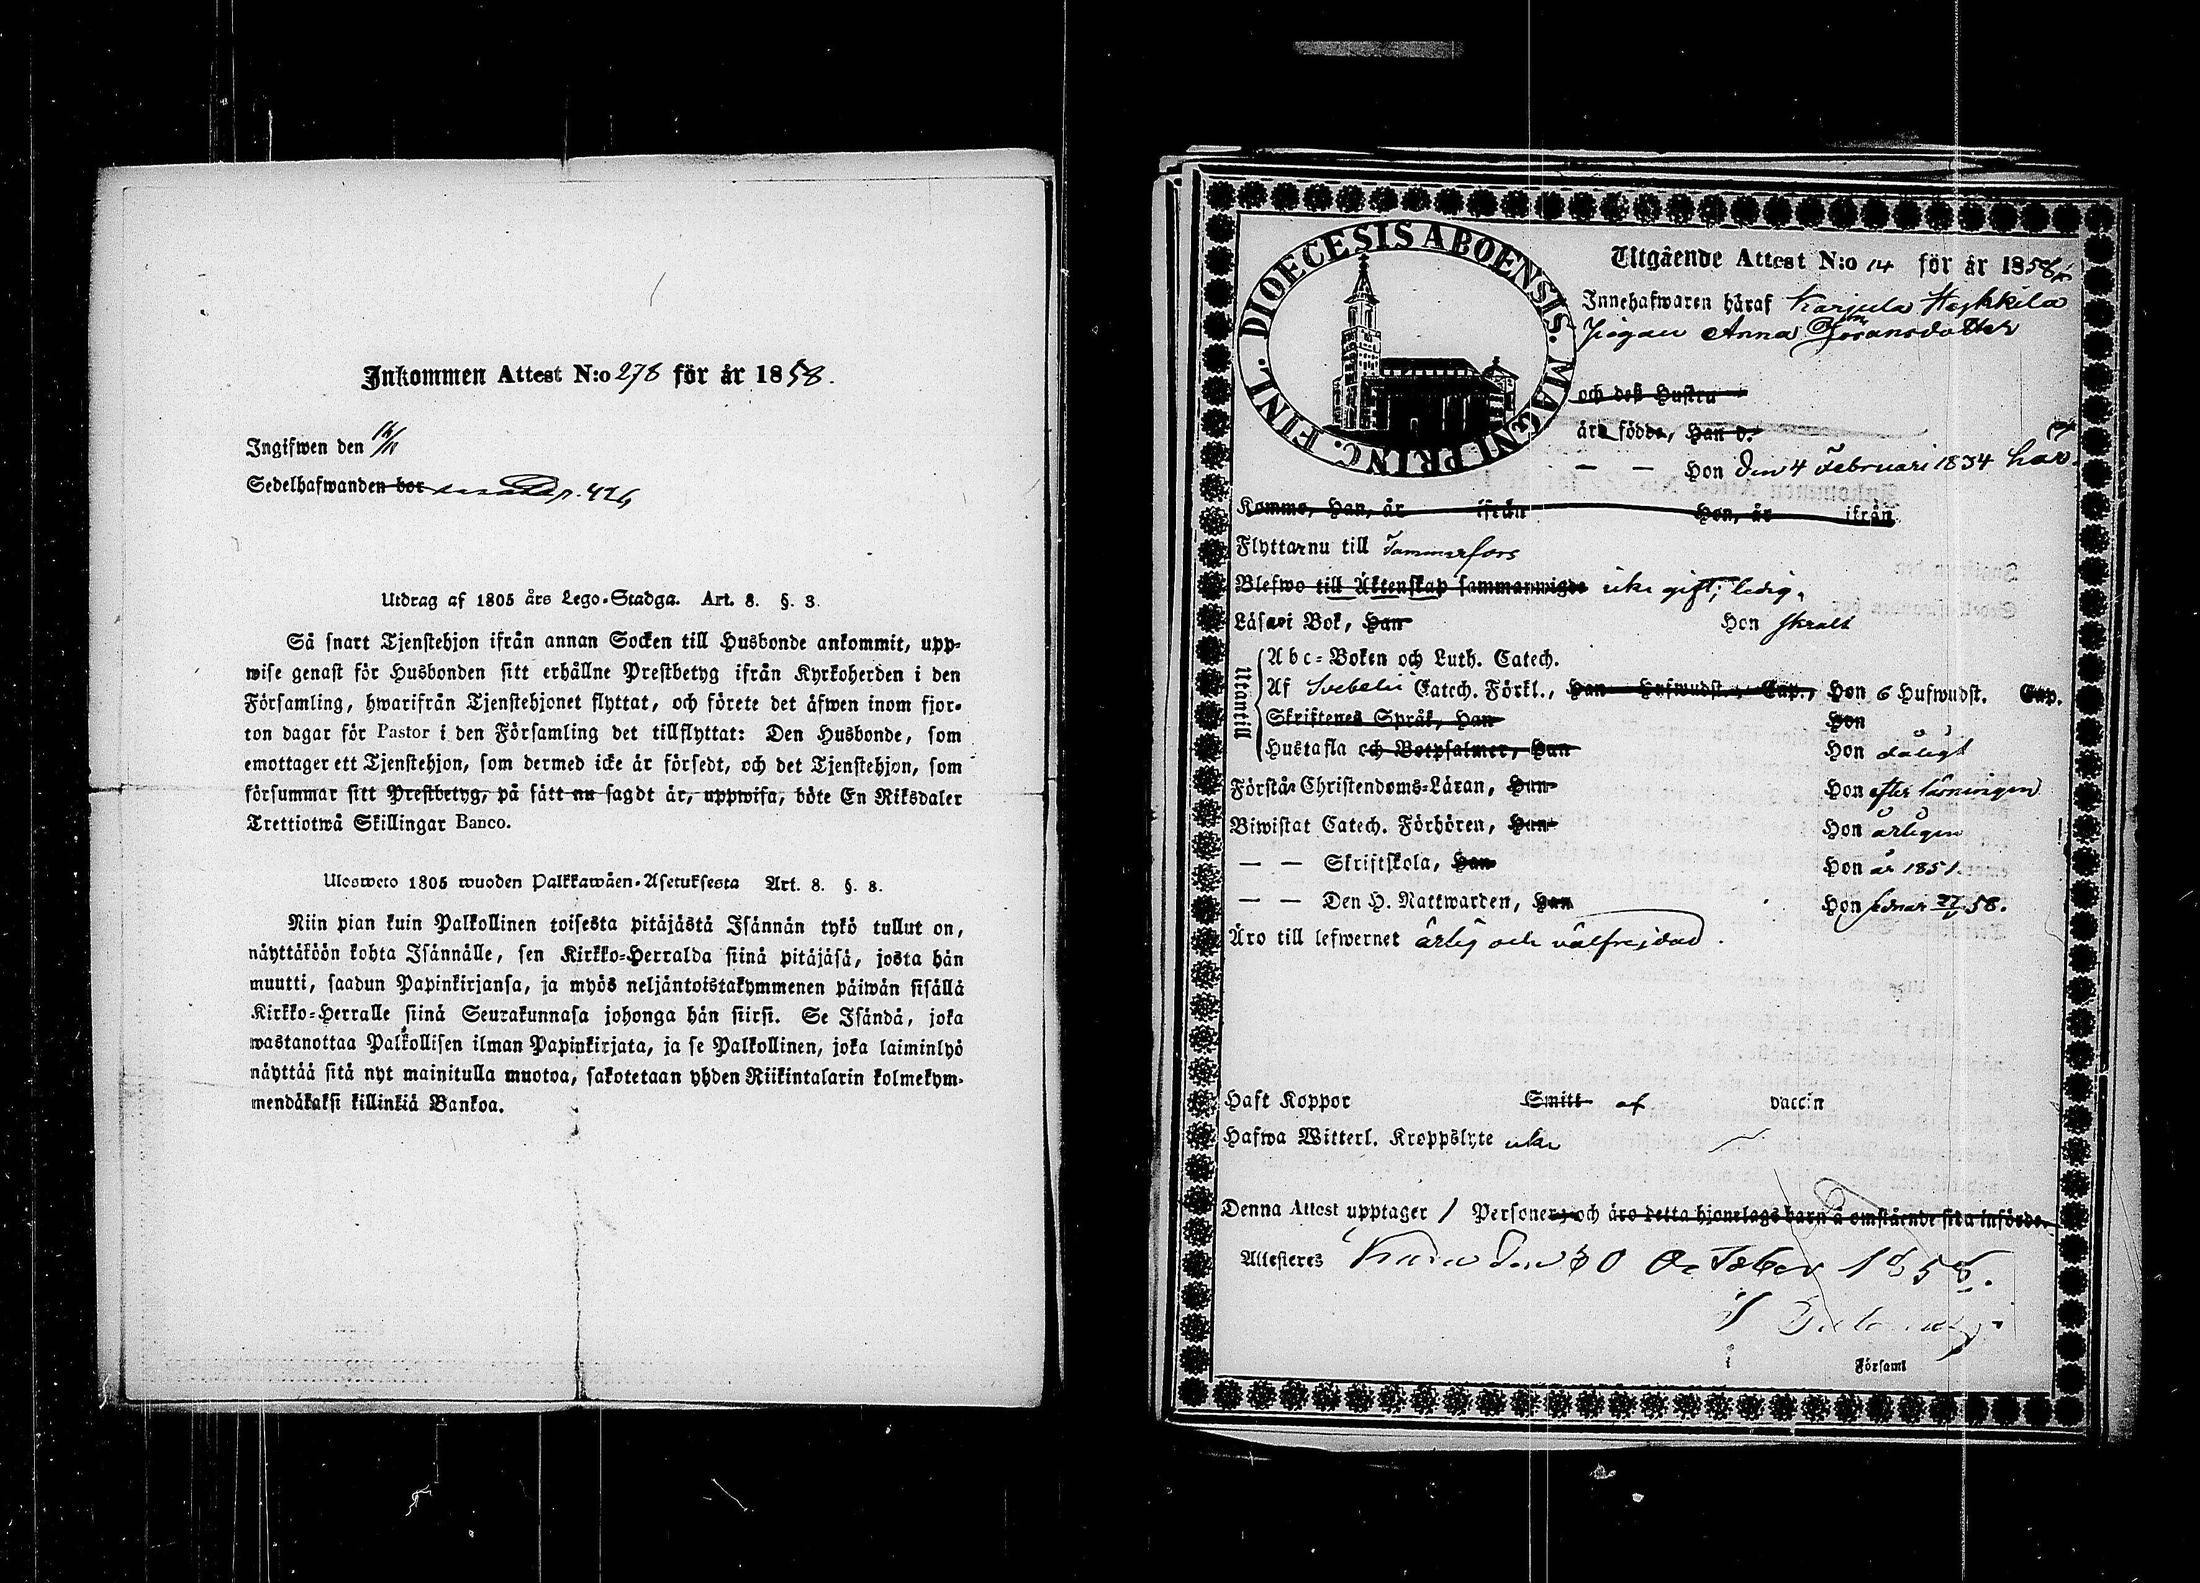 Inkommen Attest N:o 278 för år 1858.
Ingifwen den
Sedelhafwanden bor p. 426
Utdrag af 1805 års Lego-Stadga. Art. 8. §. 3.
Så snart Tjenstehjon ifrån annan Socken till Husbonde ankommit, upp-
wise genast för Husbonden sitt erhållne Prestbetyg ifrån Kyrkoherden i den
Församling, hwarifrån Tjenstehjonet flyttat, och förete det äfwen inom fjor-
ton dagar för Pastor i den Församling det tillflyttat: Den Husbonde, som
emottager ett Tjenstehjon, som dermed icke är försedt, och det Tjenstehjon, som
försummar sitt Prestbetyg, på sätt nu sagdt är, uppwisa, böte En Riksdaler
Trettiotwå Skillingar Banco.
Ulosweto 1805 wuoden Palkkawäen-Asetuksesta Art. 8. §. 3.
Niin pian kuin Palkollinen toisesta pitäjästä Isännän tykö tullut on,
näyttäköön kohta Isännälle, sen Kirkko-Herralda siinä pitäjäsä, josta hän
muutti, saadun Papinkirjansa, ja myös neljäntoistakymmenen päiwän sisällä
Kirkko-Herralle siinä Seurakunnasa johonga hän siirsi. Se Isändä, joka
wastanottaa Palkollisen ilman Papinkirjata, ja se Palkollinen, joka laiminlyö
näyttää sitä nyt mainitulla muotoa, sakotetaan yhden Riikintalarin kolmekym-
mendäkaksi killinkiä Bankoa.
DIOECESIS ABOENSIS. MAGNI PRINC. FINL.
Utgående Attest N:o 14 för år 1858
Innehafwaren häraf Karjula Heikkilä
Pigan Anna Göransdotter
och deß Hustru
äro födde, Han d.
— — Hon den 4 Februari 1834 här.
Komme, Han, år ifrån Hon, år ifrån
Flyttar nu till Tammerfors
Blefwo till Äktenskap sammanwigde icke gift; ledig.
Läser i Bok, Han Hon skralt
Utantill
Abc-Boken och Luth. Catech.
Af Svebelii Catech. Förkl., Han Hufwudst. Cap., Hon 6 Hufwudst. Cap.
Skriftenes Språk, Han Hon
Hustafla och Botpsalmer, Han Hon dåligt
Förstår Christendoms-Läran, Han Hon efter läsningen
Biwistat Catech. Förhören, Han Hon årligen
— — Skriftskola, Han Hon år 1851
— — Den H. Nattwarden, Han Hon 58.
Äro till lefwernet ärlig och välfrejdad.
Haft Koppor Smitt af vaccin
Hafwa Witterl. Kroppslyte icke
Denna Attest upptager 1 Personer, och äro detta hjonelags barn å omstående sida införde.
Attesteras Kuru den 30 October 1858.
i Församl